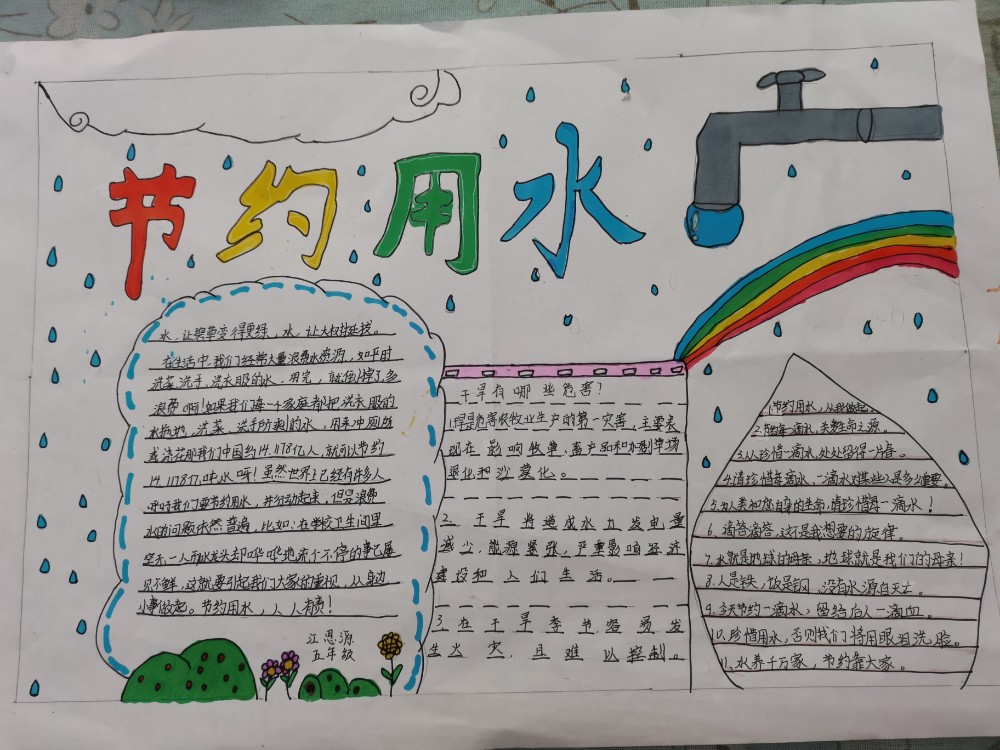 节约用水
水，让碧草变得更绿，水，让大树挺拔。
在生活中，我们经常大量浪费水资源，如平时
洗菜、洗手、洗衣服的水，用完，就倒掉了，多
浪费啊！如果我们每一个家庭都把洗衣服的
水拖地，洗菜、洗手所剩的水，用来冲厕所
或浇花那我们中国约14.1178亿人，就可以节约
14.1178亿吨水呀！虽然世界上已经有许多人
呼吁我们要节约用水，并行动起来，但是浪费
水的问题依然普遍，比如：在学校卫生间里
空无一人而水龙头却哗哗地流个不停的事已屡
见不鲜，这就要引起我们大家的重视，从身边
小事做起。节约用水，人人有责！
江思源
五年级
干旱有哪些危害？
1.旱是危害农牧业生产的第一灾害，主要表
现在影响牧草、畜产品和加剧草场
退化和沙漠化。
2.干旱将造成水力发电量
减少，能源紧张，严重影响经济
建设和人们生活。
3.在干旱季节，容易发
生火灾，且难以控制。
1.节约用水，从我做起。
2.节约每一滴水，关教生命之源。
3.从珍惜一滴水，处处留得一片春。
4.请珍惜每滴水，一滴水对某些人是多么重要。
5.为人类和您自身的生命，请珍惜每一滴水！
6.滴答滴答，这不是我想要的旋律。
7.水就是地球的母亲，地球就是我们的母亲！
8.人是铁，饭是钢，没有水源自灭亡。
9.今天节约一滴水，留给后人一滴血。
10.珍惜用水，否则我们将用眼泪洗脸。
11.水养千万家，节约靠大家。